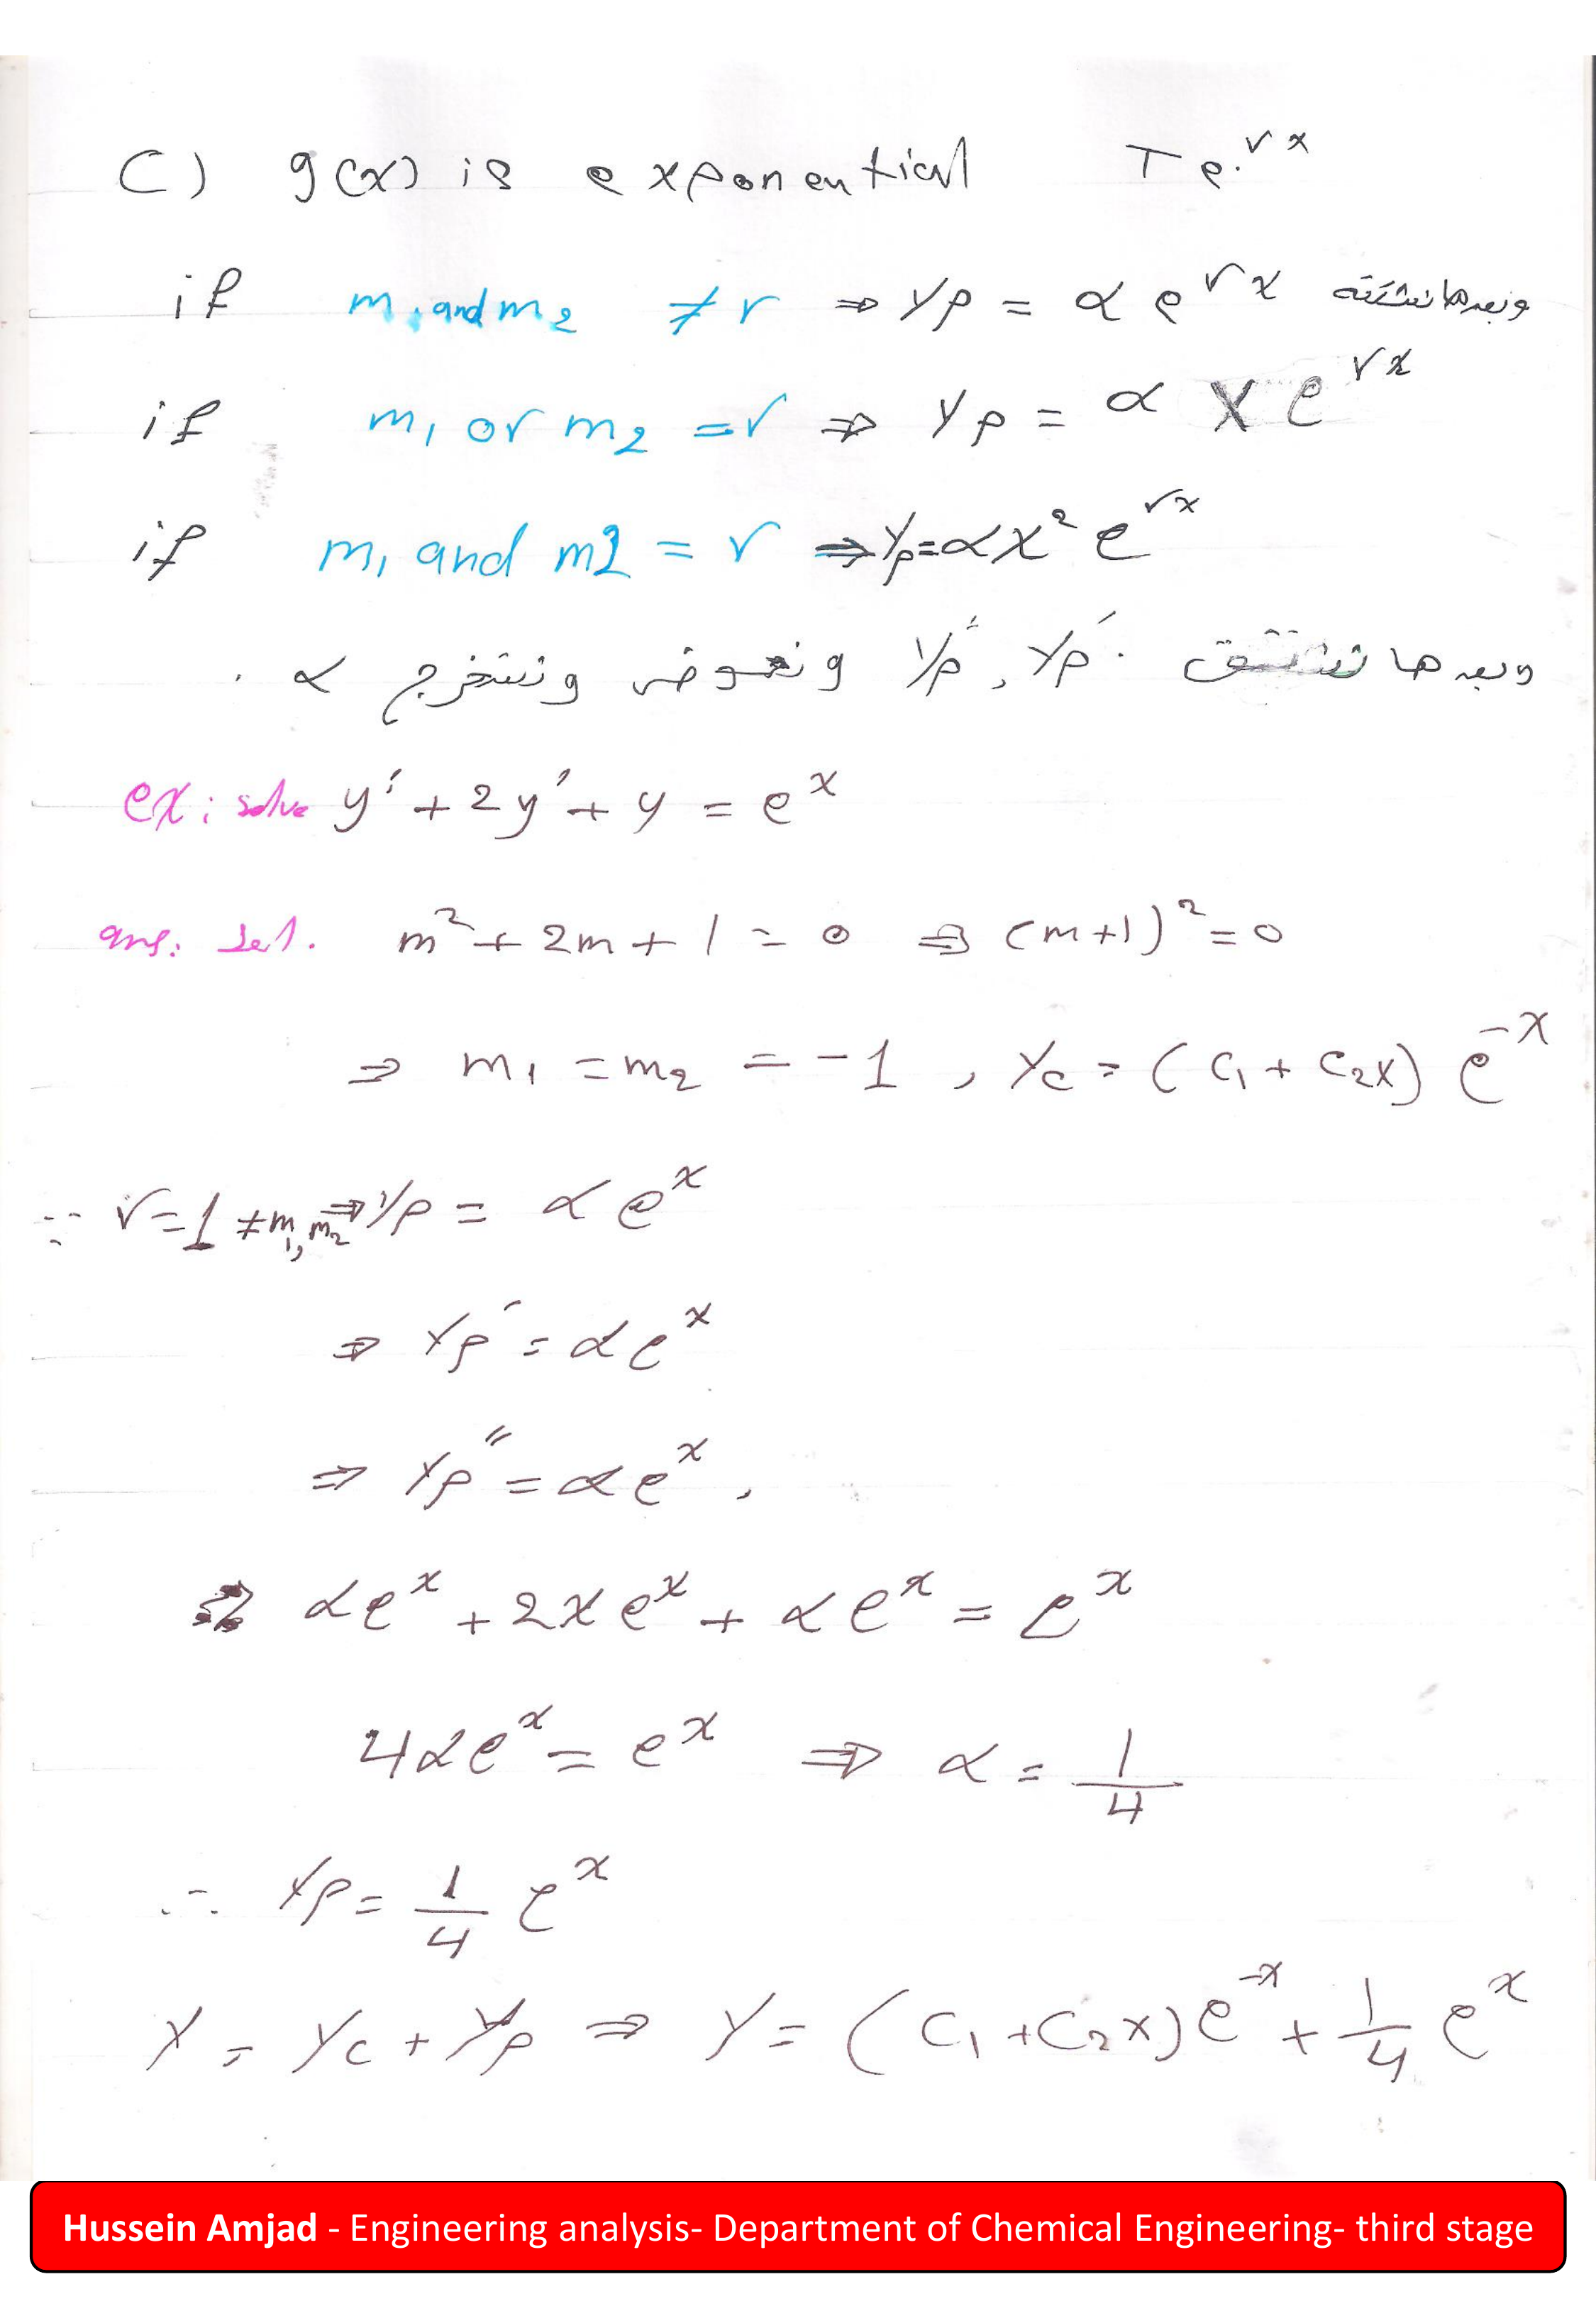 C) g(x) is exponential T e^{rx}
if m₁ and m₂ ≠ r ⇒ yp = α e^{rx} وبعدها نشتقه
if m₁ or m₂ = r ⇒ yp = α x e^{rx}
if m₁ and m2 = r ⇒ yp = αx² e^{rx}
وبعدها نشتق yp′ , yp″ ونعوض ونستخرج α .
ex: solve y″ + 2y′ + y = e^x
ans: let. m² + 2m + 1 = 0 ⇒ (m+1)² = 0
⇒ m₁ = m₂ = -1 , yc = (c₁ + c₂x) e^{-x}
∵ r = 1 ≠ m₁, m₂ ⇒ yp = α e^x
⇒ yp′ = αe^x
⇒ yp″ = αe^x ,
αe^x + 2xe^x + αe^x = e^x
4αe^x = e^x ⇒ α = 1/4
∴ yp = 1/4 e^x
y = yc + yp ⇒ y = (c₁ + c₂x)e^{-x} + 1/4 e^x
Hussein Amjad - Engineering analysis- Department of Chemical Engineering- third stage